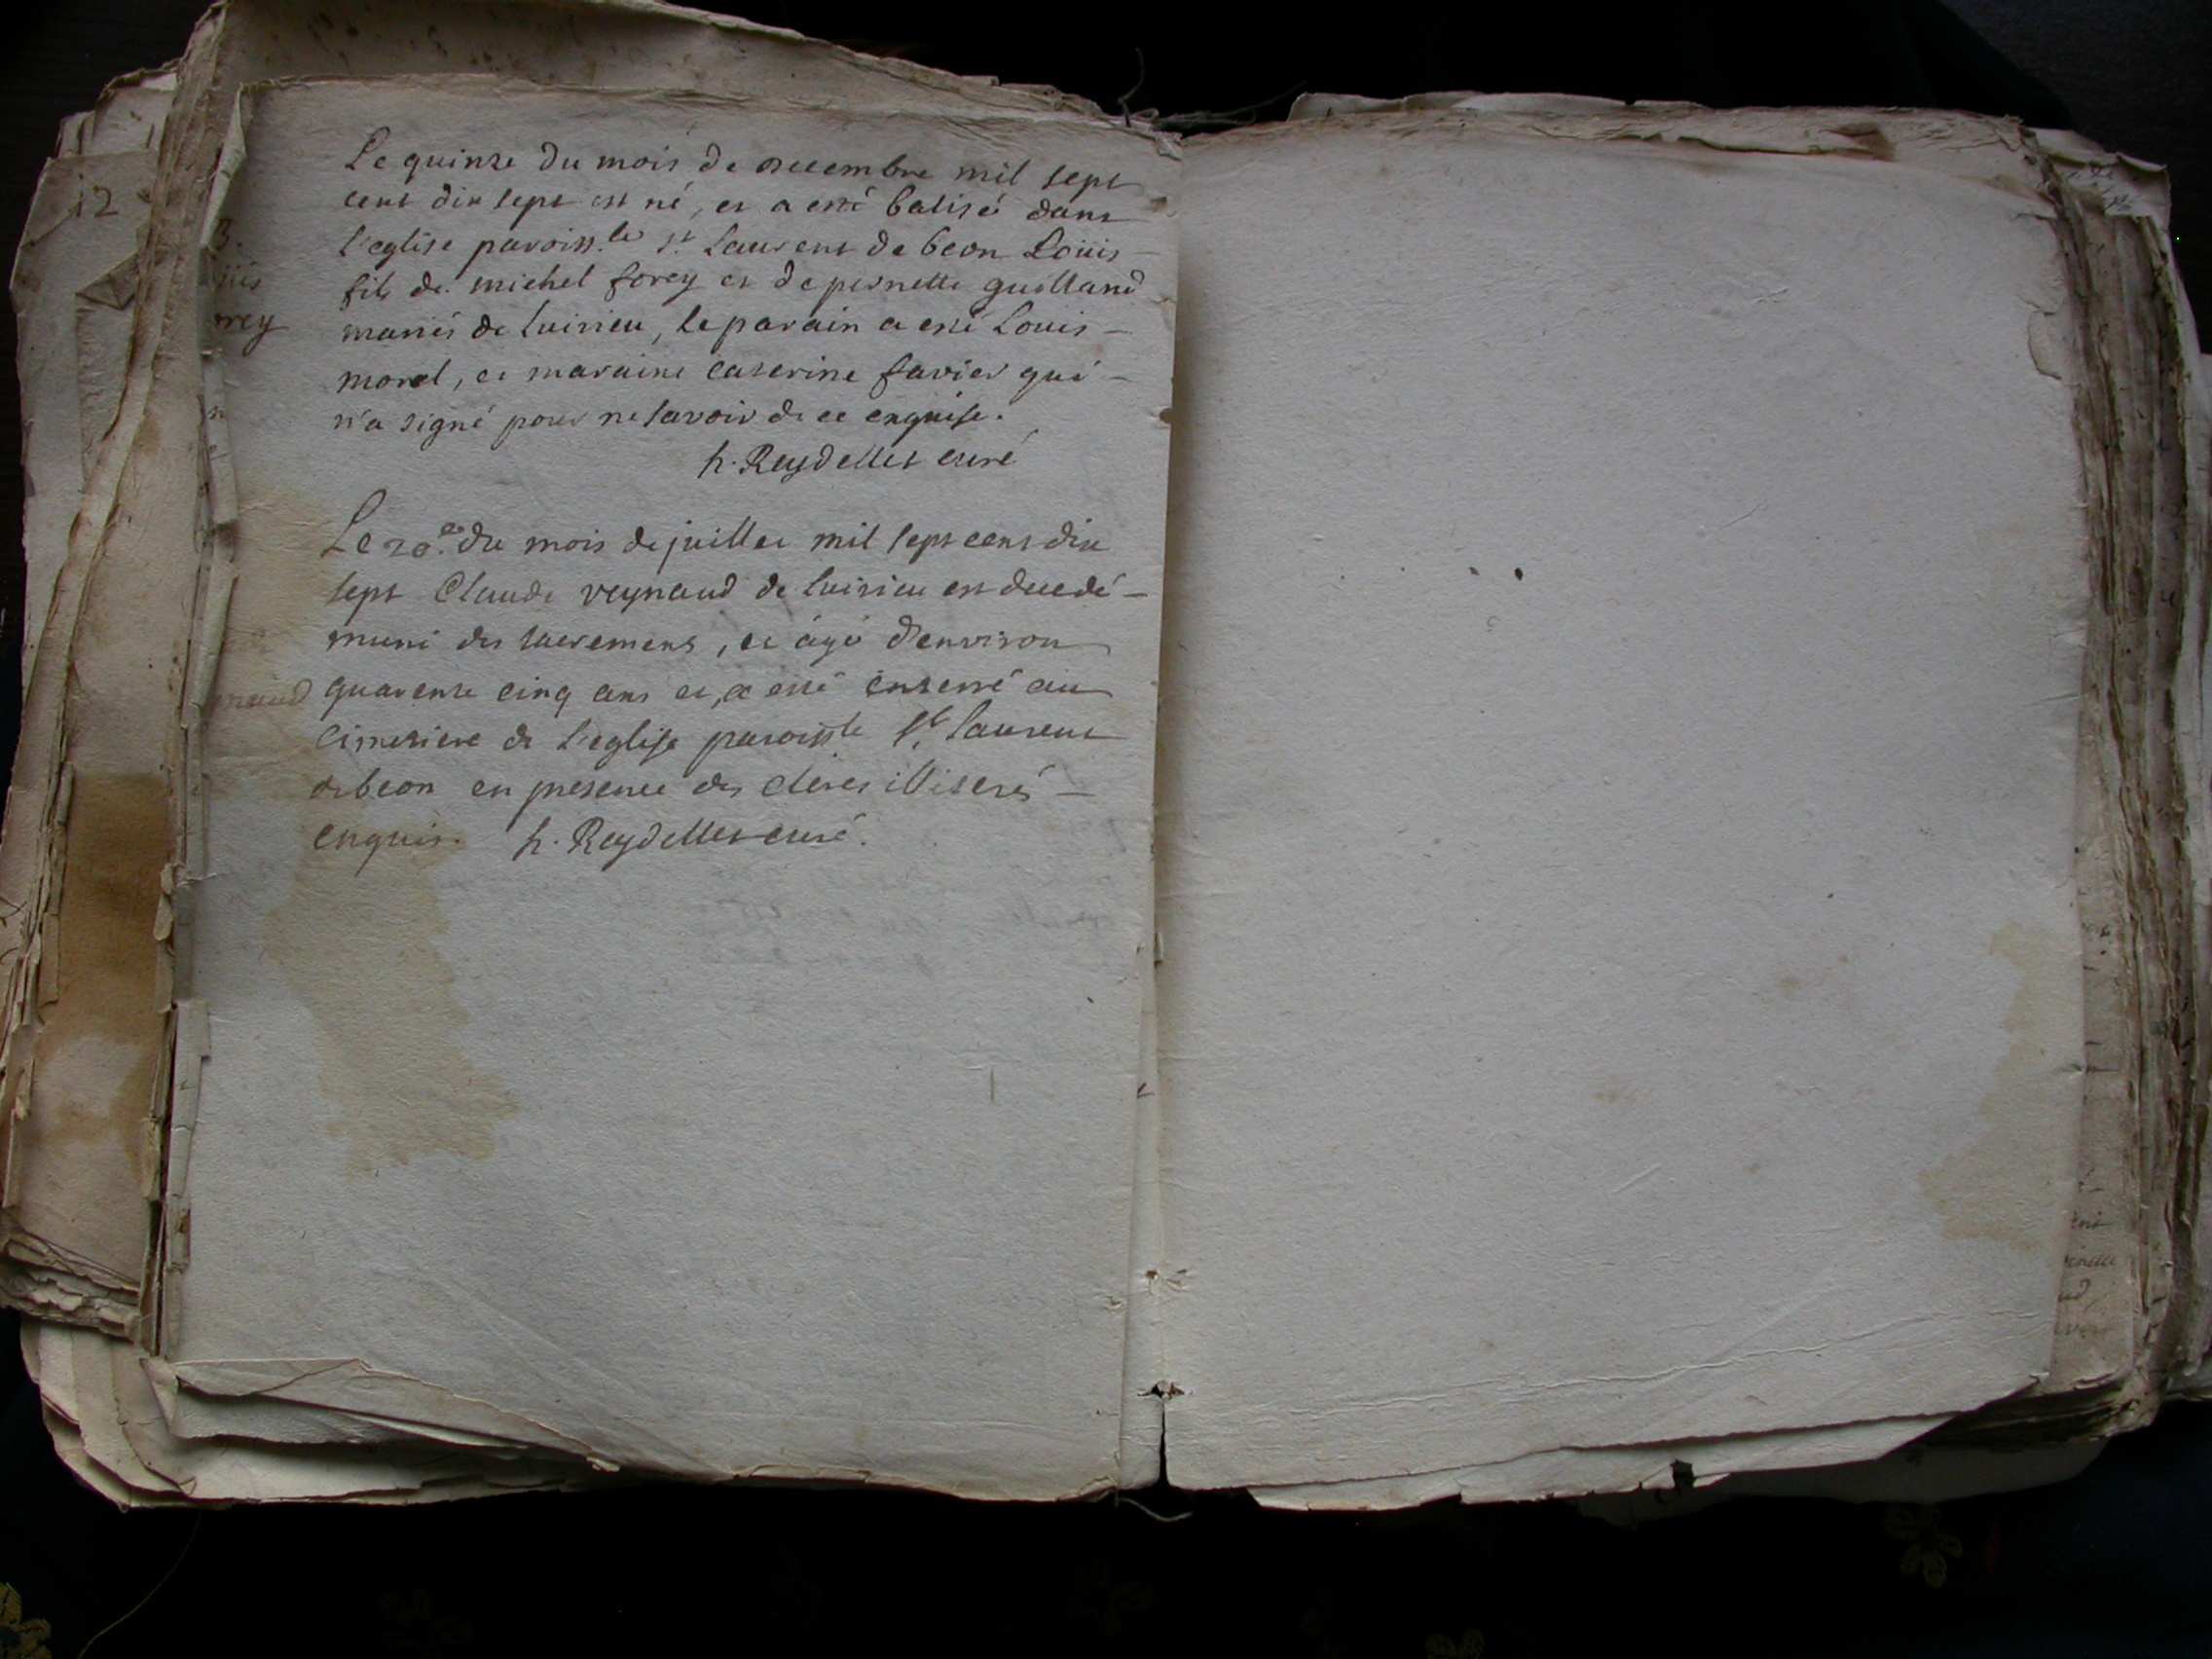 Le quinze du mois de decembre mil sept
cent dix sept est né, et a esté batisé dans
l'eglise paroiss.le st Laurent de beon Loüis
fils de michel forey et de pernette guilland
mariés de luirieu, le parain a esté Louis
morel, et maraine caterine favier qui
n'a signé pour ne savoir de ce enquise.
h. Reydellet curé
Le 20.e du mois de juillet mil sept cent dix
sept Claude reynaud de luirieu est decedé
muni des sacremens, et âgé d'environ
quarente cinq ans et, a esté enterré au
cimetiere de l'eglise paroissle st. laurent
de beon en presence des clercs illiterés
enquis. h. Reydellet curé.
12
3.
üis
orey
naud